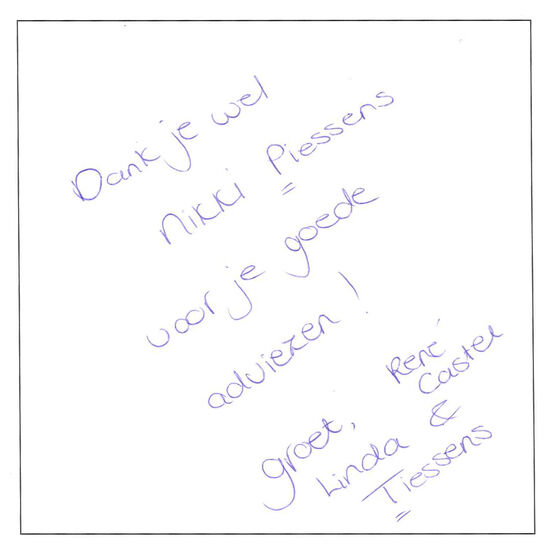 Dank je wel
Nikki Piessens
voor je goede
adviezen!
groet, René
Castel
Linda &
Tiessens